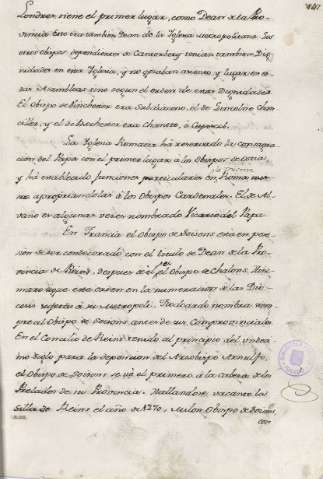 Londres tiene el primer lugar, como Dean de la Pro-
vincia era tambien Dean de la Iglesia Metropolitana. los
otros Obispos dependientes de Cantorbery tenian tambien Dig-
nidades en esta Iglesia, y no ocupaban asiento y lugar en es-
tas Asambleas sino segun el orden de estas Dignidades.
El Obispo de Winchester era Subdiacono, el de Lincolne Chan-
ciller, y el de Rochester era Chantre, ó Capiscol.
La Iglesia Romana há reservado la Consagra-
cion del Papa con el primer lugar á los Obispos de Ostia,
y há establecido funciones particulares en Roma
apropiandolas á los Obispos Cardenales. El de Al-
vano en algunas veces nombrado Vicario del Papa
En Francia el Obispo de Soisons está en pose-
sion de ser condecorado con el titulo de Dean de la Pro-
vincia de Reims. Despues de el el Obispo de Chalons.
este orden en la numeracion de las Dio-
cesis respeto á su Metropoli. Flodoardo nombra siem-
pre al Obispo de Soisons antes de sus Comprovinciales.
En el Concilio de Reims tenido al principio del
siglo para la deposicion del Arzobispo Arnulfo,
el Obispo de Soisons se vé el primero á la cabeza de los
Prelados de su Provincia. Hallandose vacante la
Silla de Reims el año de 1270, Milon Obispo de Soisons